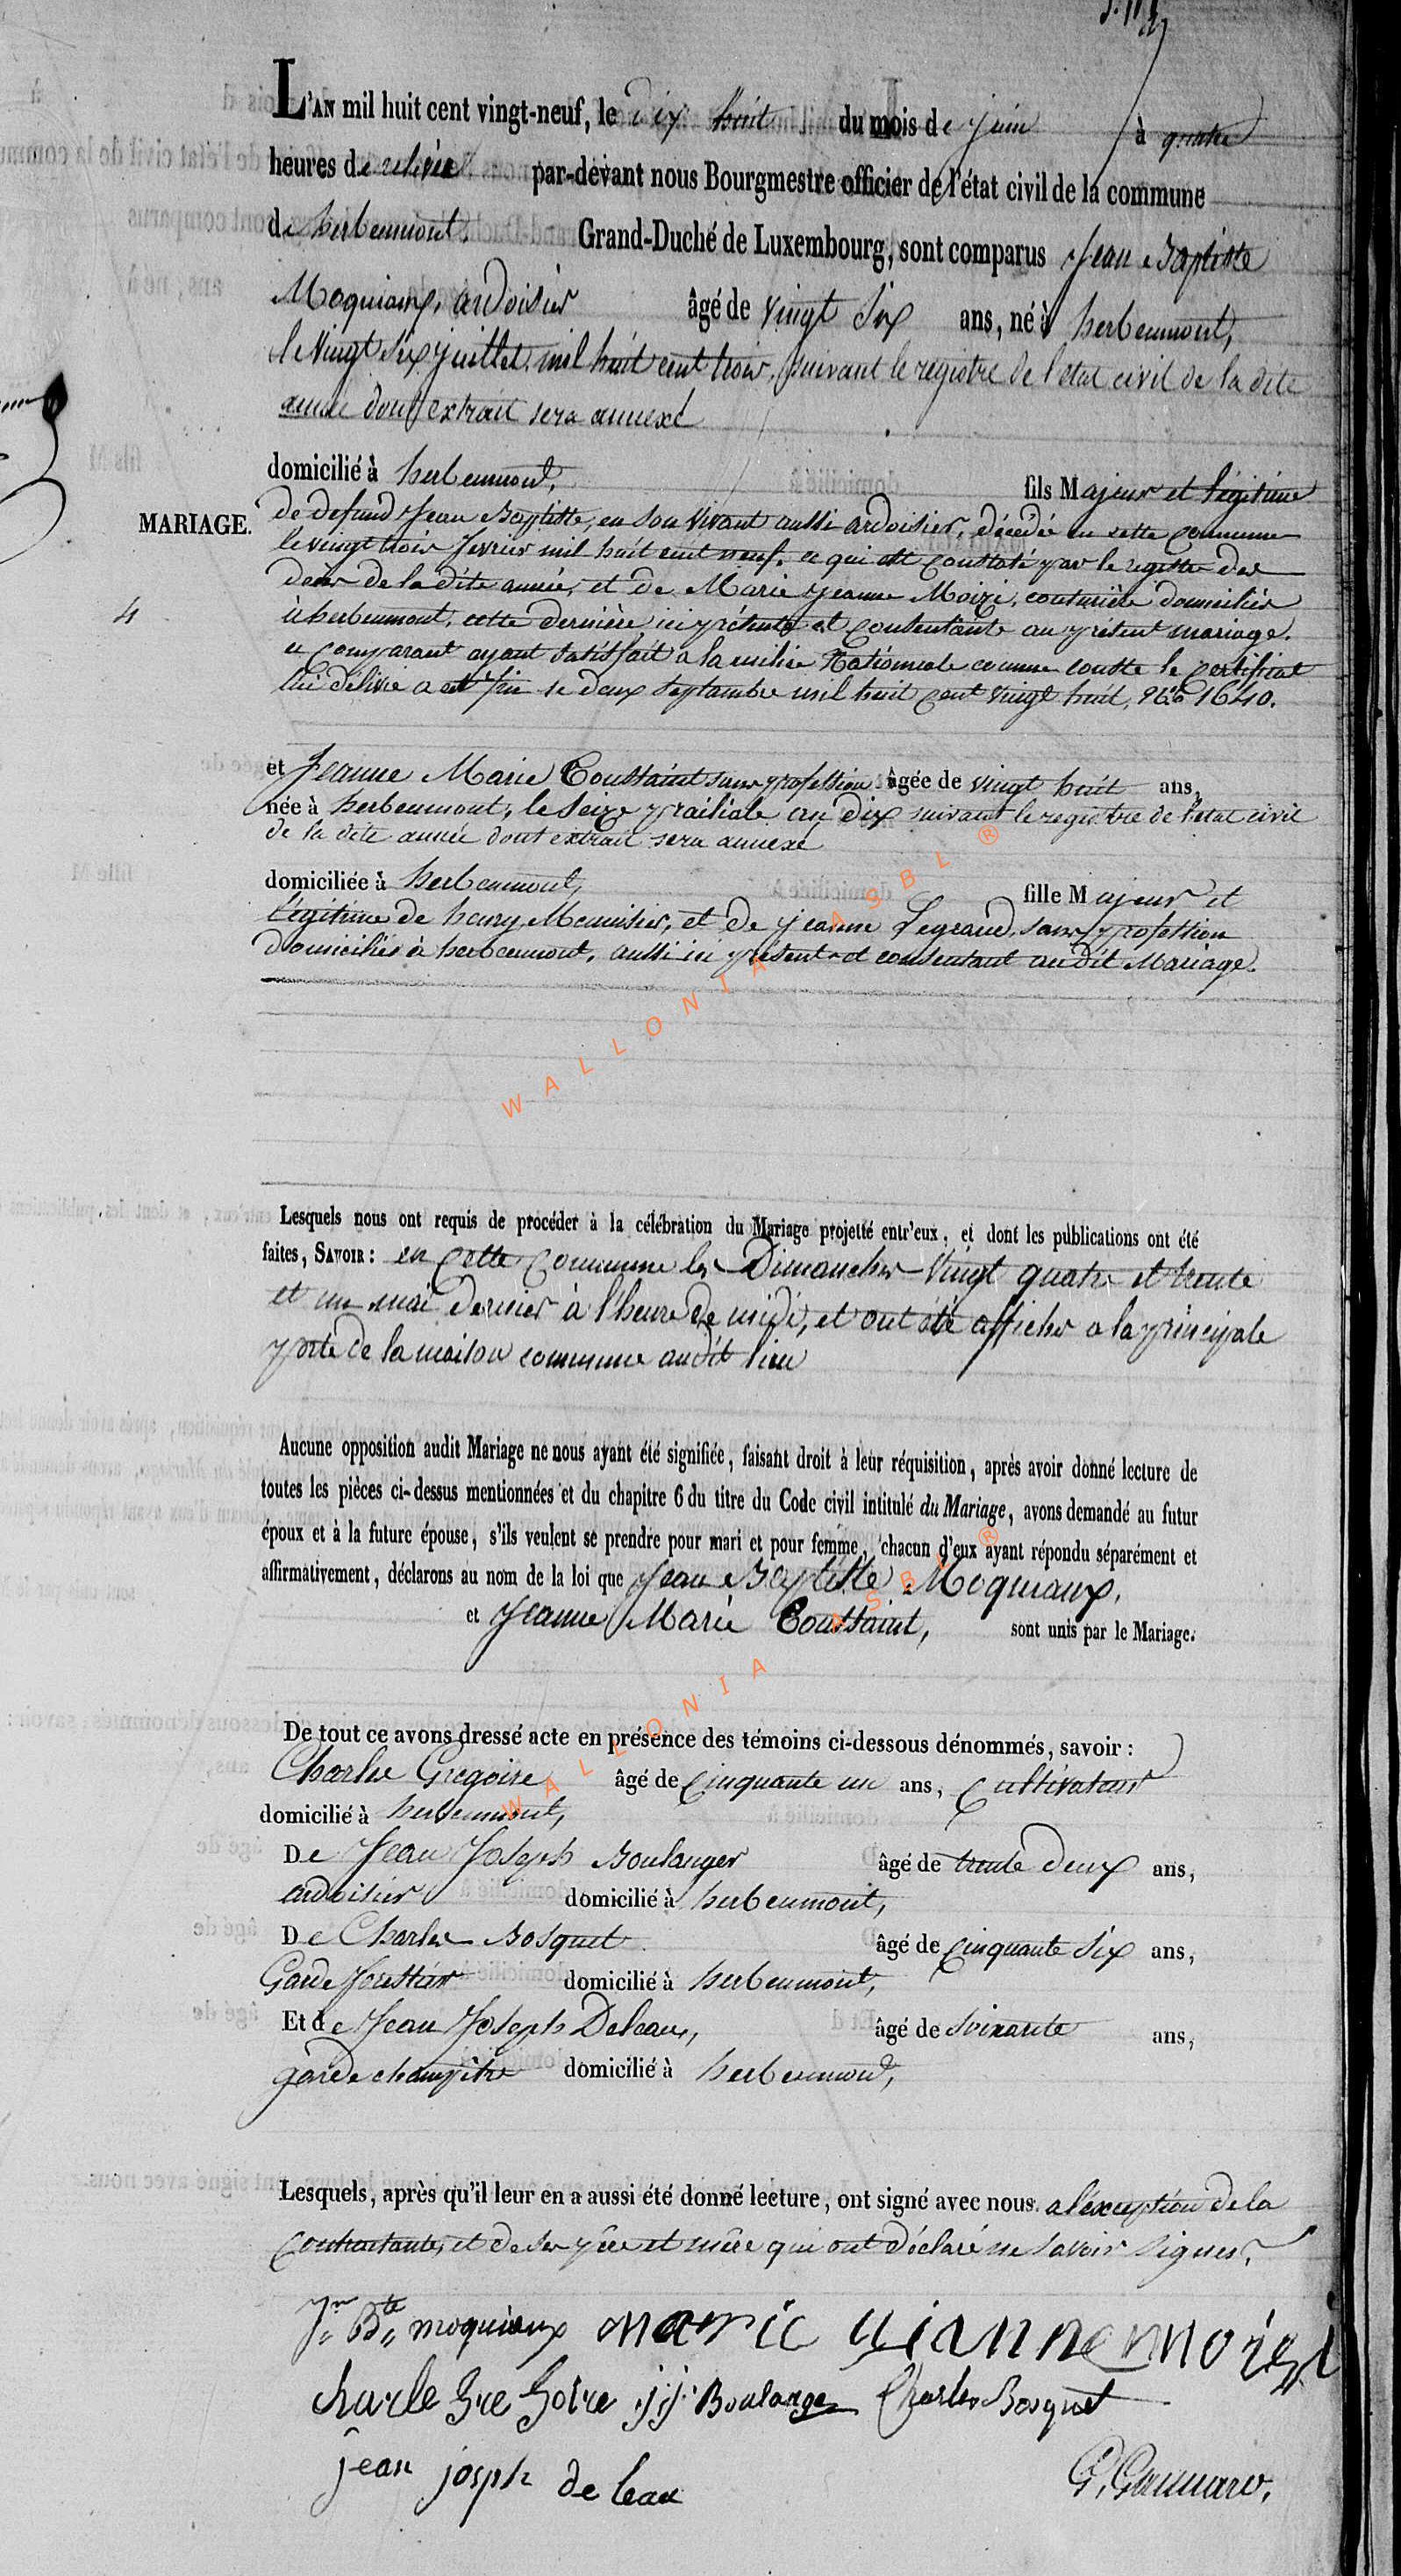 L'AN mil huit cent vingt-neuf, le dix huit du mois de juin à quatre
heures de relevée par-devant nous Bourgmestre officier de l'état civil de la commune
de herbeumont. Grand-Duché de Luxembourg, sont comparus Jean Baptiste
Moquiaux, ardoisier âgé de vingt six ans, né à herbeumont,
le vingt six juillet mil huit cent trois, suivant le registre de l'état civil de la dite
année dont extrait sera annexé
domicilié à herbeumont, fils Majeur et légitime
MARIAGE.
de defund Jean Baptiste, en son vivant aussi ardoisier, décédé en cette commune
le vingt trois fevrier mil huit cent neuf, ce qui est constaté par le registre des
décès de la dite année, et de Marie Jeanne Moizi, couturière domiciliés
4
à herbeumont, cette dernière ici présente et consentante au présent mariage.
ce comparant ayant satisfait a la milice Nationale comme conste le certificat
lui délivré a cet fin le deux septembre mil huit cent vingt huit, 1640.
et Jeanne Marie Toustaint sans profession âgée de vingt huit ans,
née à herbeumont, le seize prailiale an dix suivant le registre de l'état civil
de la dite année dont extrait sera annexé
domiciliée à herbeumont, fille Majeur et
légitime de henry Meunister, et de jeanne Legrand, sans profession
domiciliés à herbeumont, aussi ici présent et consentant audit Mariage.
WALLONIA ASBL ®
Lesquels nous ont requis de procéder à la célébration du Mariage projetté entr'eux, et dont les publications ont été
faites, SAVOIR : en cette commune les Dimanches vingt quatre et trente
et un mai dernier à l'heure de midi, et ont été affiches a la principale
porte de la maison commune audit lieu
Aucune opposition audit Mariage ne nous ayant été signifiée, faisant droit à leur réquisition, après avoir donné lecture de
toutes les pièces ci-dessus mentionnées et du chapitre 6 du titre du Code civil intitulé du Mariage, avons demandé au futur
époux et à la future épouse, s'ils veulent se prendre pour mari et pour femme, chacun d'eux ayant répondu séparément et
affirmativement, déclarons au nom de la loi que Jean Baptiste Moquiaux,
et Jeanne Marie Toustaint, sont unis par le Mariage.
WALLONIA ASBL ®
De tout ce avons dressé acte en présence des témoins ci-dessous dénommés, savoir :
Charles Gregoire âgé de cinquante un ans, cultivateur
domicilié à herbeumont,
De Jean Joseph Boulanger âgé de trente deux ans,
ardoisier domicilié à herbeumont,
De Charles Bosquet âgé de cinquante six ans,
Garde forestier domicilié à herbeumont,
Et de Jean Joseph Deleau, âgé de soixante ans,
garde champêtre domicilié à herbeumont,
Lesquels, après qu'il leur en a aussi été donné lecture, ont signé avec nous. a l'exception de la
contractante, et de ses père et mère qui ont déclaré ne savoir signer.
Jn Bte moquiaux marie jianne moizi
charle Gre Goire j.j. Boulanger Charles Bosquet
jean josph de leau